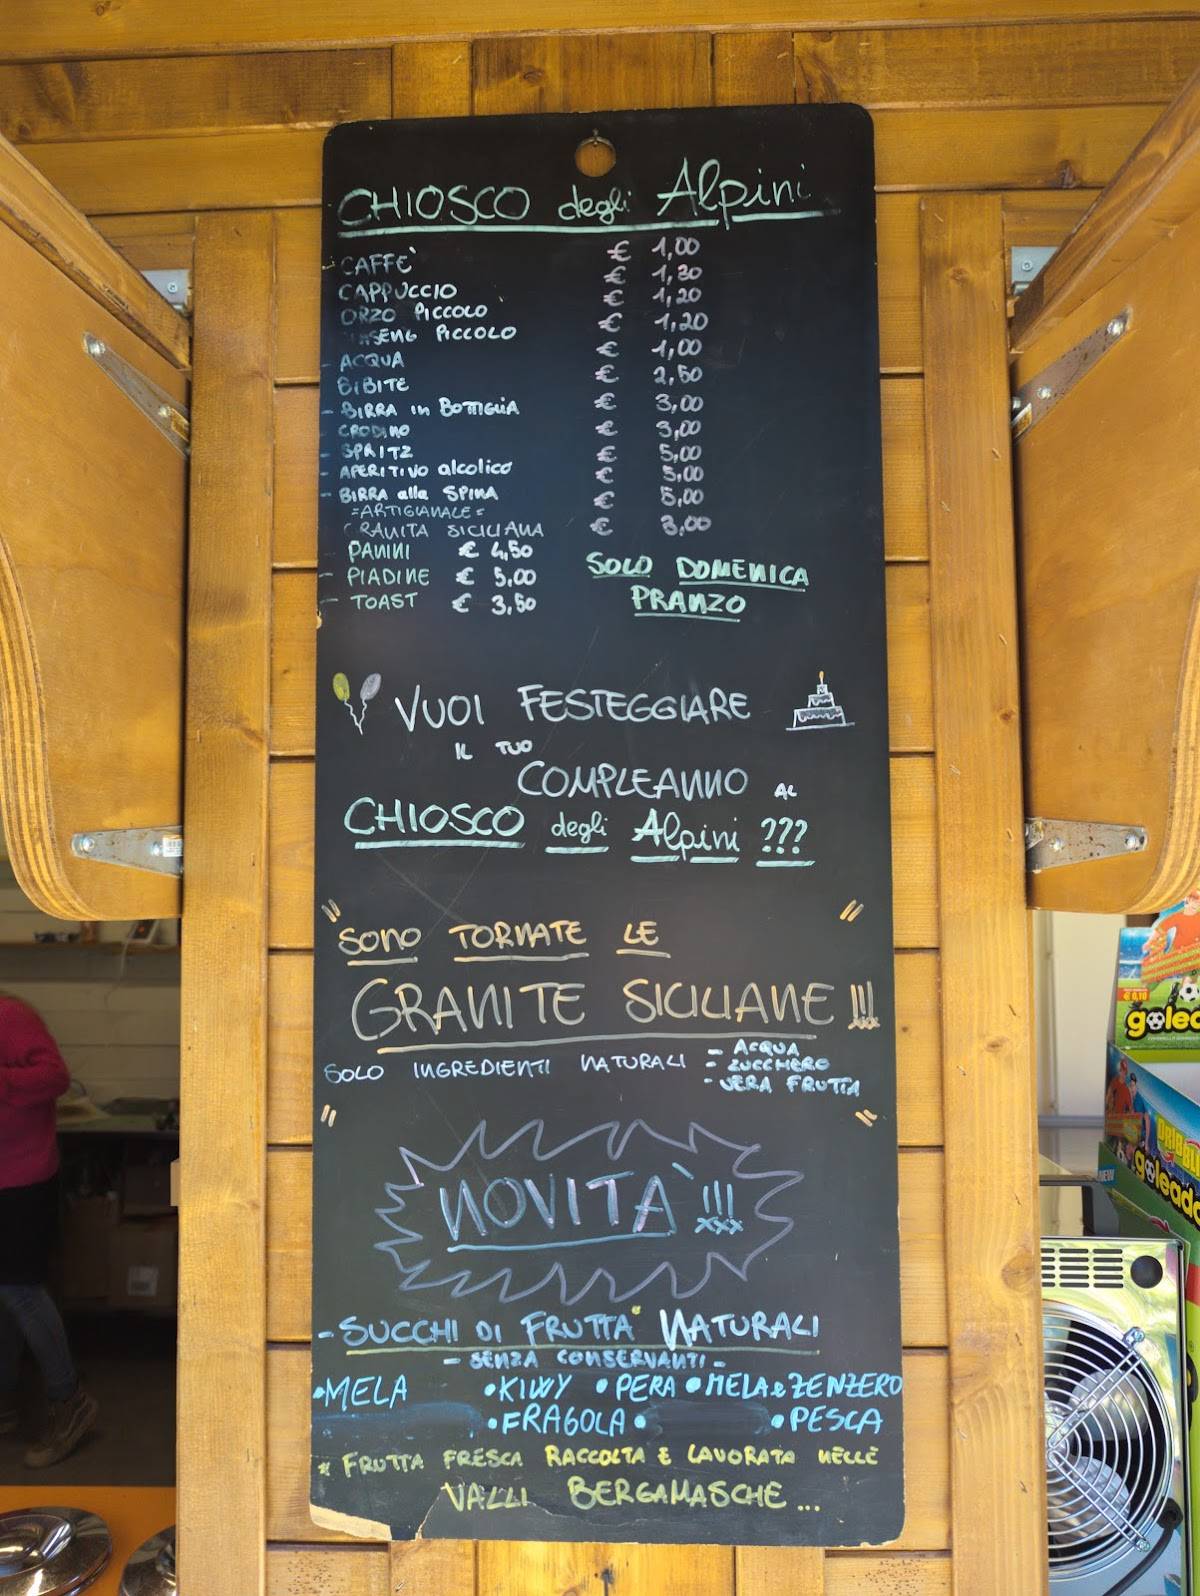 CHIOSCO degli Alpini
- CAFFE' € 1,00
CAPPUCCIO € 1,30
ORZO PICCOLO € 1,20
PICCOLO € 1,20
- ACQUA € 1,00
BIBITE € 2,50
- BIRRA in BOTTIGLIA € 3,00
- CRODINO € 3,00
- SPRITZ € 5,00
- APERITIVO alcolico € 5,00
- BIRRA alla SPINA € 5,00
=ARTIGIANALE=
GRANITA SICILIANA € 3,00
PANINI € 4,50
- PIADINE € 5,00
- TOAST € 3,50
SOLO DOMENICA
PRANZO
VUOI FESTEGGIARE
IL TUO
COMPLEANNO AL
CHIOSCO degli Alpini ???
" SONO TORNATE LE "
GRANITE SICILIANE !!!
SOLO INGREDIENTI NATURALI
- ACQUA
- ZUCCHERO
- VERA FRUTTA
" "
NOVITA' !!!
- SUCCHI DI FRUTTA* NATURALI
- SENZA CONSERVANTI -
• MELA • KIWY • PERA • MELA e ZENZERO
• FRAGOLA • • PESCA
* FRUTTA FRESCA RACCOLTA E LAVORATA NELLE
VALLI BERGAMASCHE...
€ 0,10
golea
DRIBBL
NEW
goleado